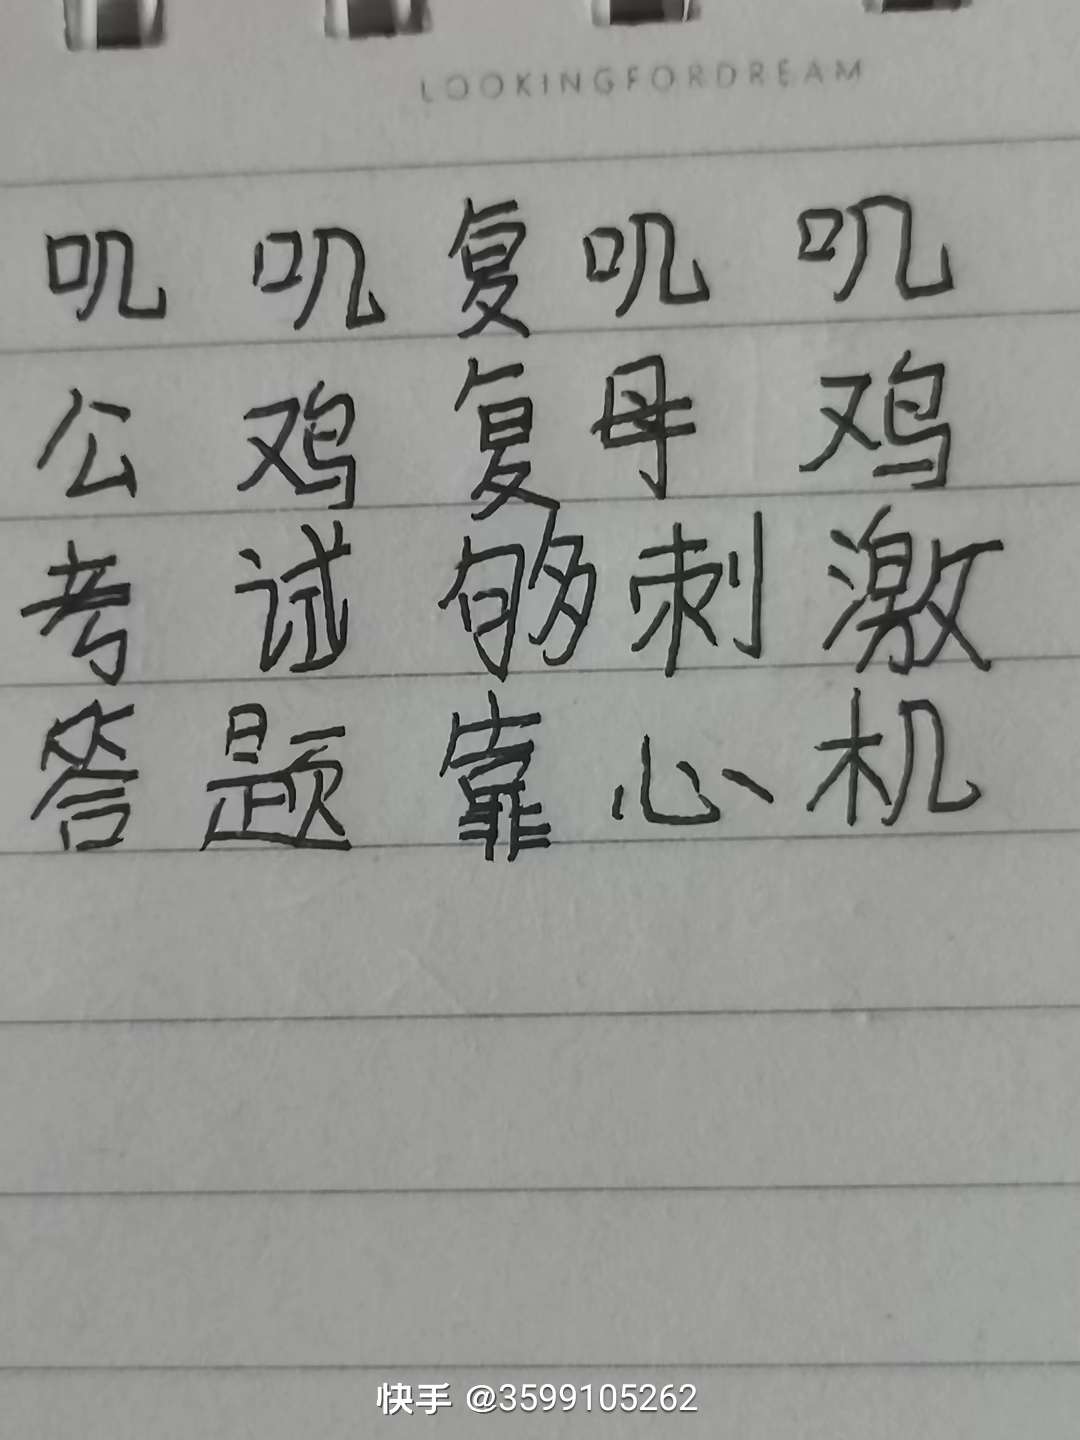 LOOKINGFORDREAM
叽叽复叽叽
公鸡复母鸡
考试够刺激
答题靠心机
快手 @3599105262